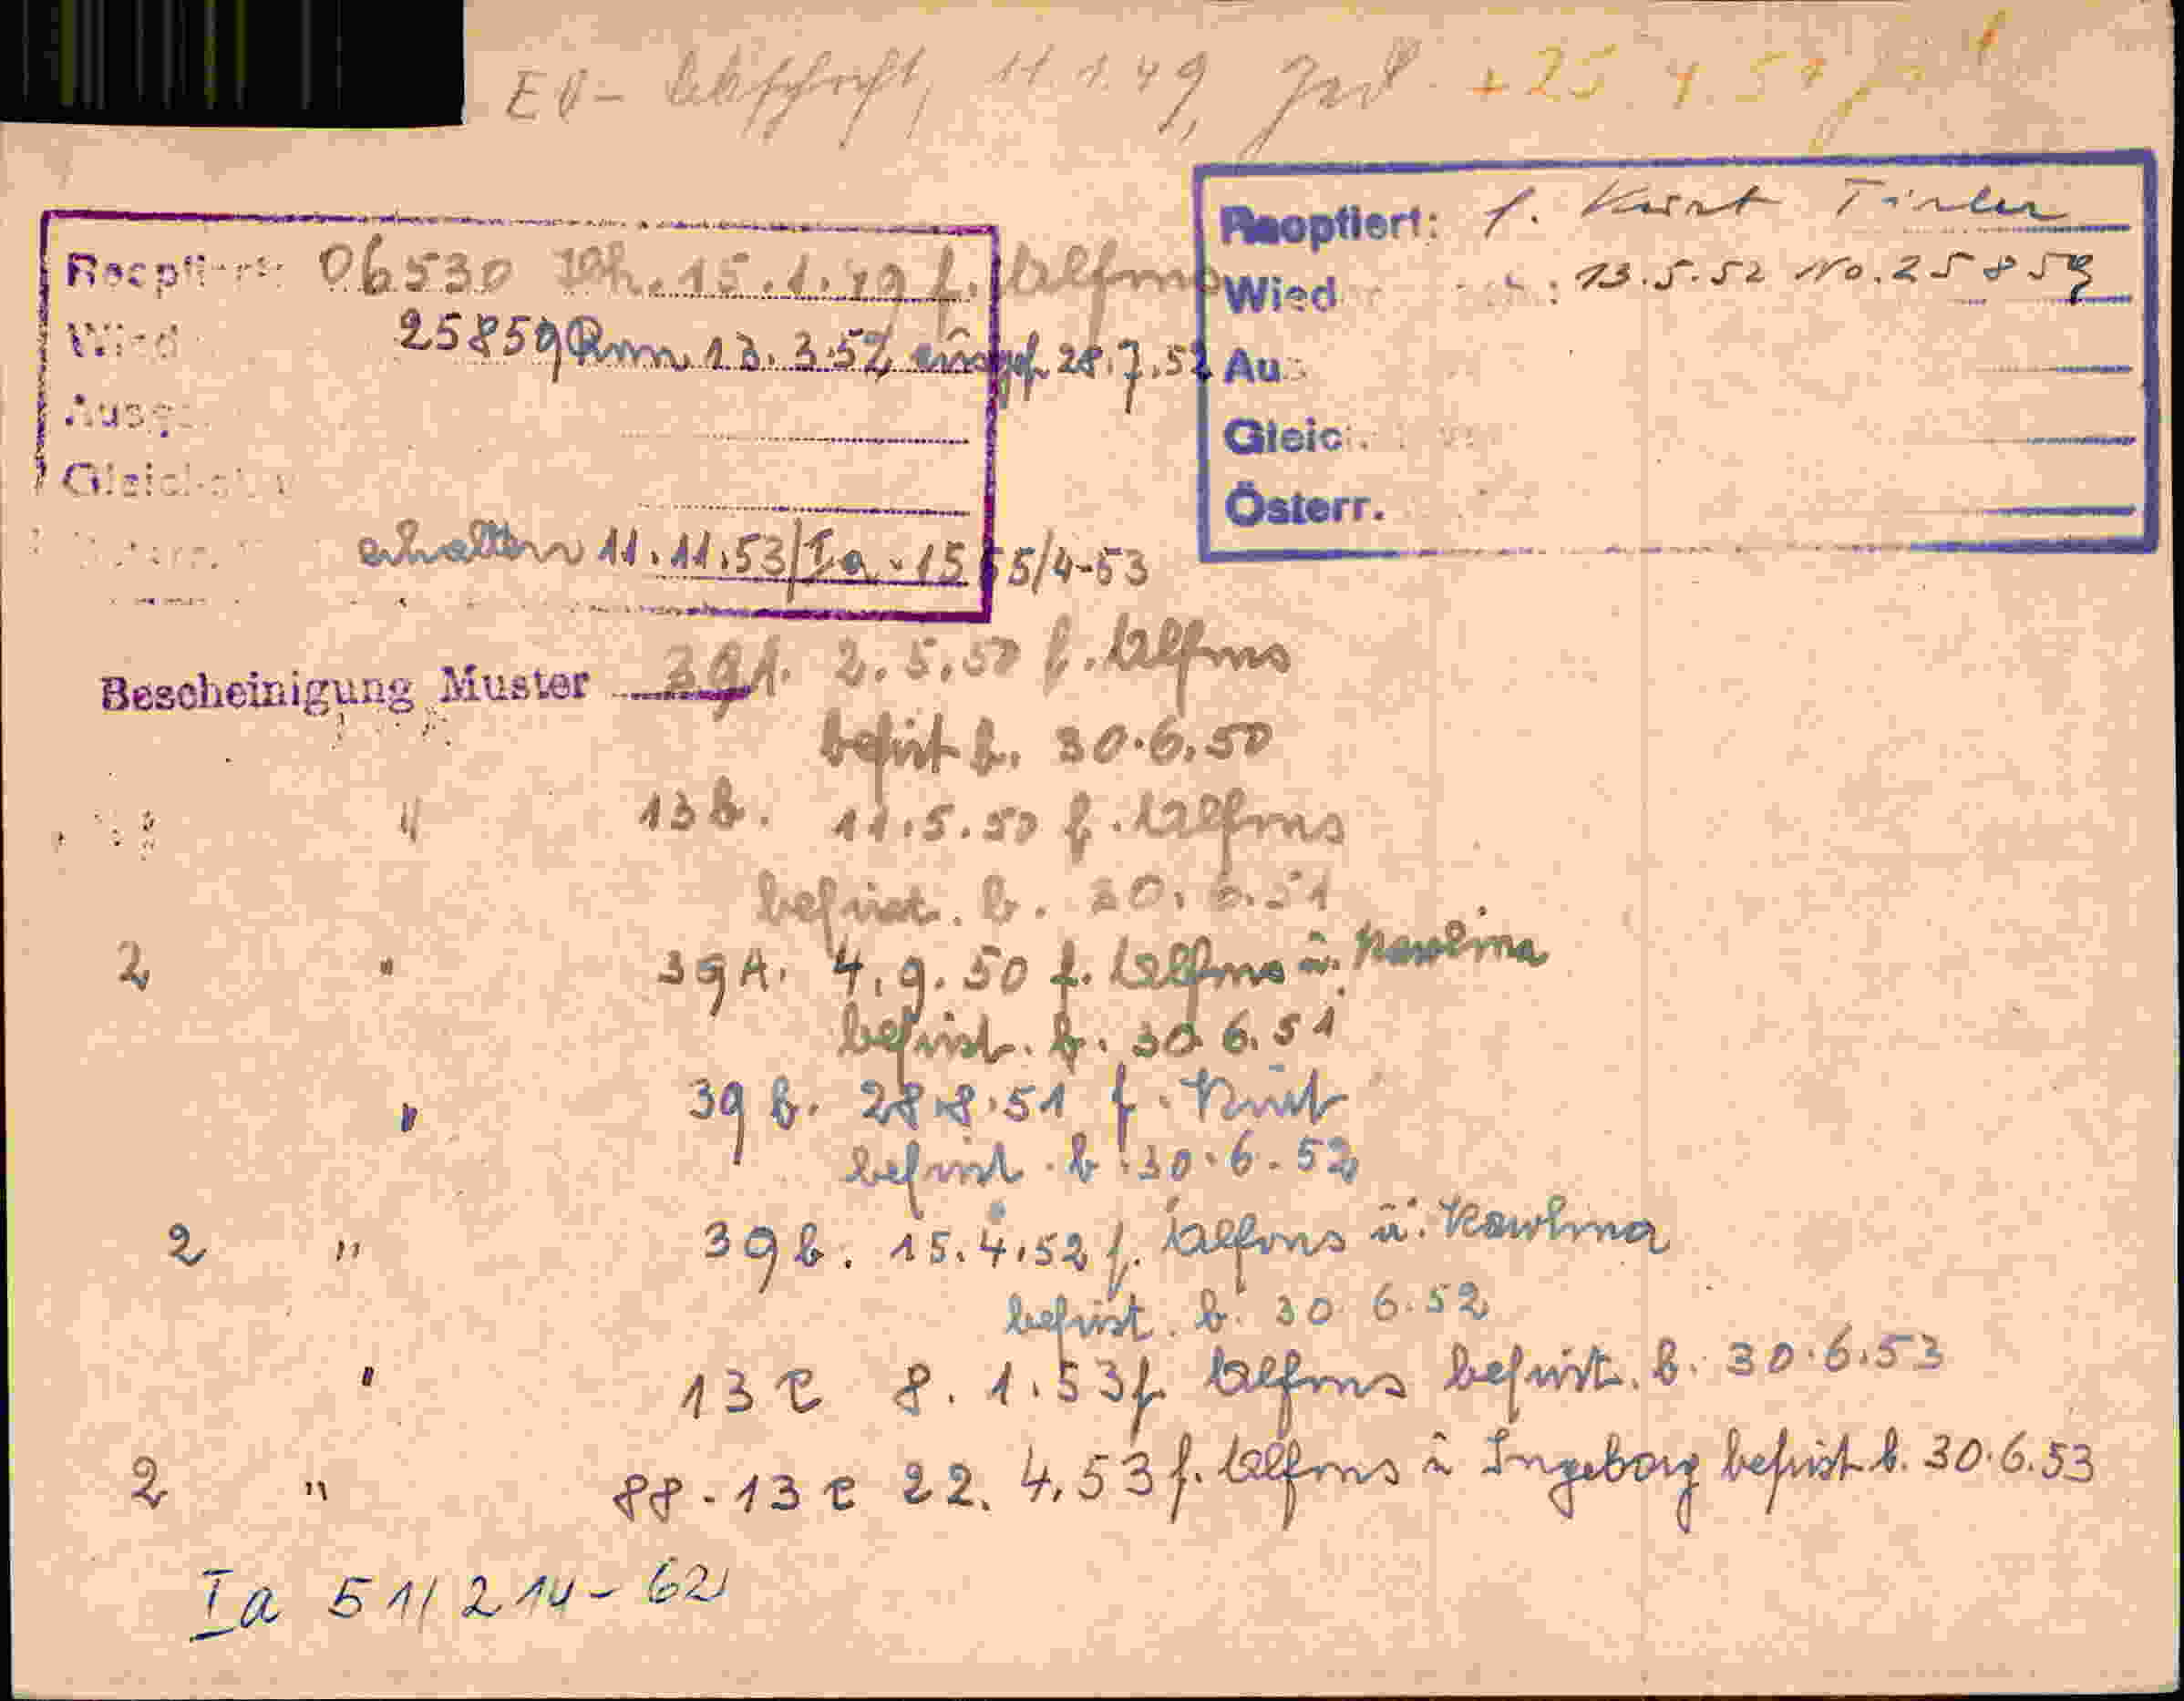 EO - Abschrift, 11.1.49, + 25.4.54
Reoptiert: 06530 Ibk. 15.1.49 f. Alfons
Wied 25859 Rom 13.3.52 eingel. 28.7.52
Ausge
Gleichst
erhalten 11.11.53/Ia-1555/4-53
Reoptiert: f. Kurt Tirler
Wied 13.5.52 No. 25859
Au
Gleic
Österr.
Bescheinigung Muster 39A. 2.5.50 f. Alfons
befrist b. 30.6.50
" 13b. 11.5.50 f. Alfons
befrist. b. 30.6.51
2 " 39A. 4.9.50 f. Alfons u. Karolina
befrist. b. 30.6.51
" 39b. 28.8.51 f. Kurt
befrist. b. 30.6.52
2 " 39b. 15.4.52 f. Alfons u. Karolina
befrist. b. 30.6.52
" 13c 8.1.53 f. Alfons befrist. b. 30.6.53
2 " 88-13c 22.4.53 f. Alfons u Ingeborg befrist b. 30.6.53
Ia 51/214-62